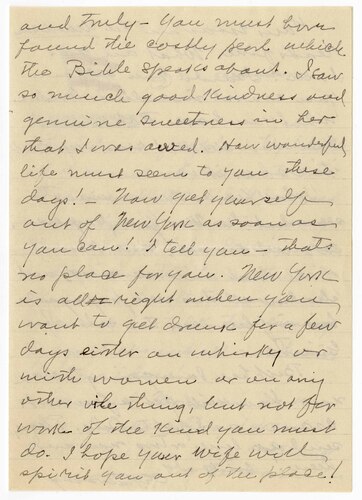 and truly - You must have
found the costly pearl which
the Bible speaks about. I saw
so much good kindness and
genuine sweetness in her
that I was awed. How wonderful
life must seem to you these
days! - Now get yourself
out of New York as soon as
you can! I tell you - that's
no place for you. New York
is all right when you
want to get drunk for a few
days either on whisky or
with women or on any
other vile thing, but not for
work of the kind you must
do. I hope your wife will
spirit you out of the place!